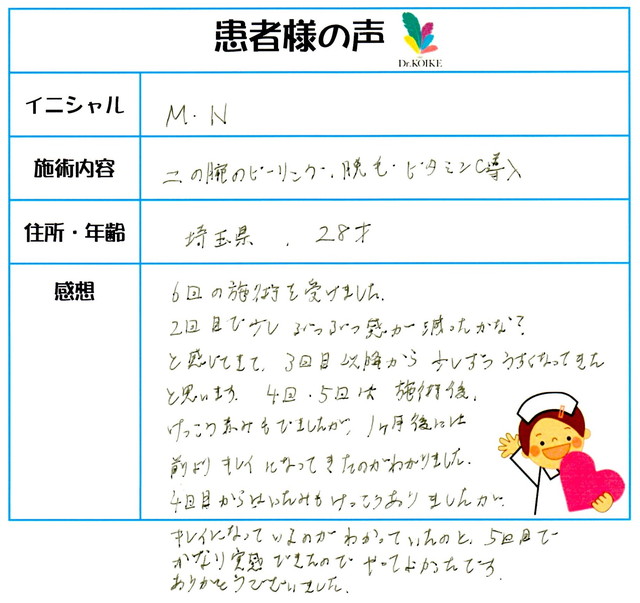 患者様の声
Dr.KOIKE
イニシャル
M. N
施術内容
二の腕のピーリング、脱毛・ビタミンC導入
住所・年齢
埼玉県 、 28才
感想
6回の施術を受けました。
2回目で少しぶつぶつ感が減ったかな?
と感じてきて、3回目以降から少しずつうすくなってきた
と思います。4回・5回は施術後、
けっこう赤みもでましたが、1ヶ月後には
前よりキレイになってきたのがわかりました。
4回目からはいたみもけっこうありましたが、
キレイになっているのがわかっていたのと、5回目で
かなり実感できたのでやってよかったです。
ありがとうございました。